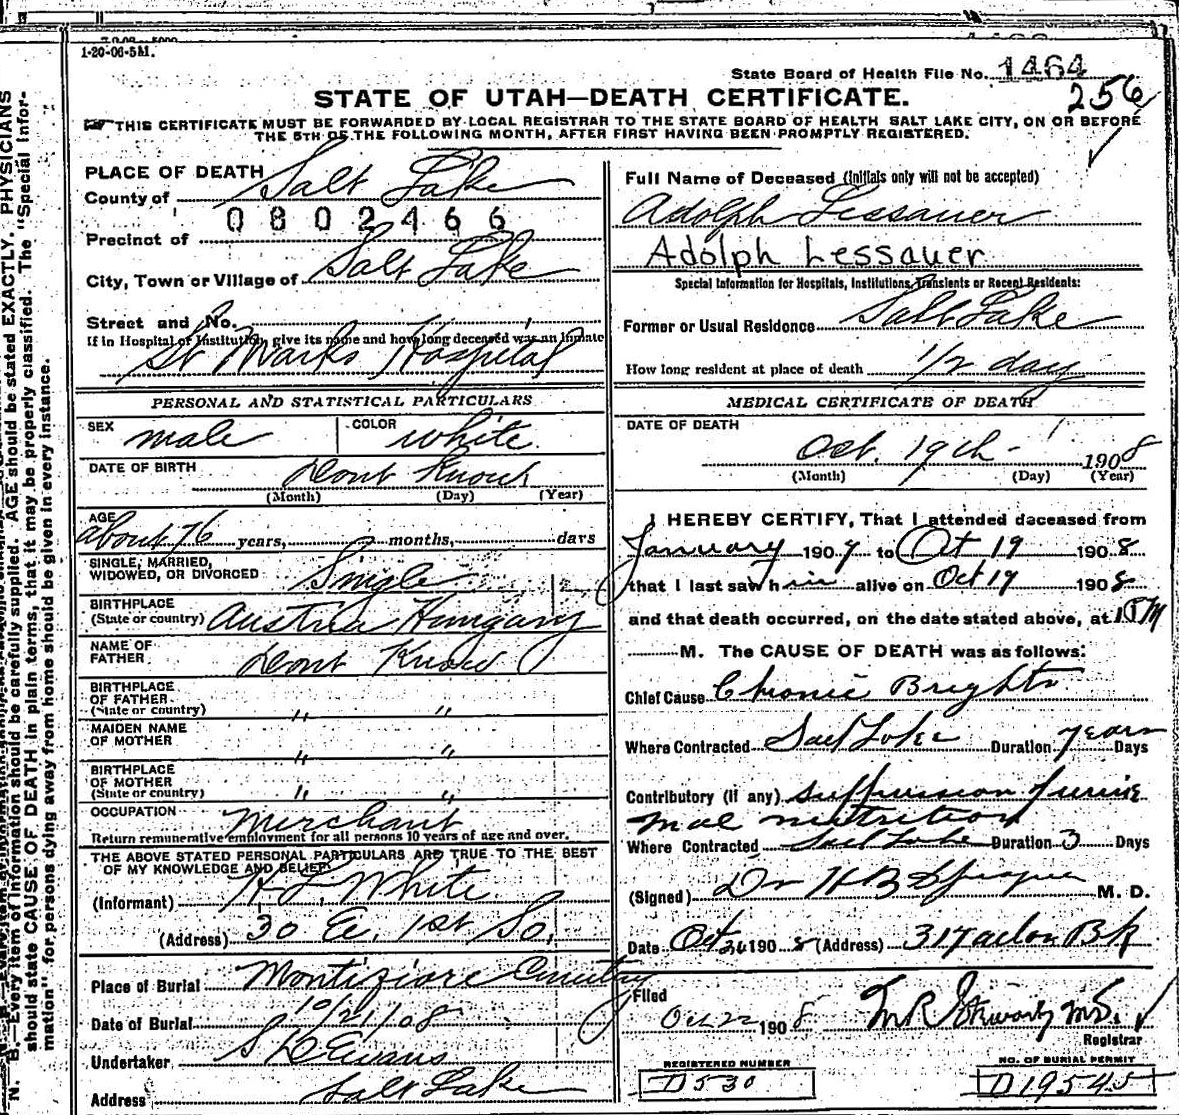 1-20-06-5M.
State Board of Health File No. 1464
256
STATE OF UTAH—DEATH CERTIFICATE.
THIS CERTIFICATE MUST BE FORWARDED BY LOCAL REGISTRAR TO THE STATE BOARD OF HEALTH SALT LAKE CITY, ON OR BEFORE
THE 5TH OF THE FOLLOWING MONTH, AFTER FIRST HAVING BEEN PROMPTLY REGISTERED.
PLACE OF DEATH
County of Salt Lake
0802466
Precinct of
City, Town or Village of Salt Lake
Street and No.
If in Hospital or Institution, give its name and how long deceased was an inmate
St Marks Hospital
PERSONAL AND STATISTICAL PARTICULARS
SEX male COLOR white
DATE OF BIRTH Dont Know
(Month) (Day) (Year)
AGE about 76 years, months, days
SINGLE, MARRIED,
WIDOWED, OR DIVORCED Single
BIRTHPLACE
(State or country) Austria Hungary
NAME OF
FATHER Dont Know
BIRTHPLACE
OF FATHER
(State or country) " "
MAIDEN NAME
OF MOTHER " "
BIRTHPLACE
OF MOTHER
(State or country) " "
OCCUPATION Merchant
Return remunerative employment for all persons 10 years of age and over.
THE ABOVE STATED PERSONAL PARTICULARS ARE TRUE TO THE BEST
OF MY KNOWLEDGE AND BELIEF
(Informant) H L White
(Address) 30 E. 1st So.
Place of Burial Montifiore Cemetery
Date of Burial 10/21/08
Undertaker S D Evans
Address Salt Lake
Full Name of Deceased (Initials only will not be accepted)
Adolph Lessauer
Adolph Lessauer
Special Information for Hospitals, Institutions, Transients or Recent Residents:
Former or Usual Residence Salt Lake
How long resident at place of death 1/2 day
MEDICAL CERTIFICATE OF DEATH
DATE OF DEATH
Oct. 19th 1908
(Month) (Day) (Year)
I HEREBY CERTIFY, That I attended deceased from
January 1907 to Oct 19 1908
that I last saw him alive on Oct 19 1908
and that death occurred, on the date stated above, at
M. The CAUSE OF DEATH was as follows:
Chief Cause Chronic Brights
Where Contracted Salt Lake Duration years Days
Contributory (if any) suppression of urine
mal nutrition
Where Contracted Salt Lake Duration 3 Days
(Signed) Dr H B Sprague M. D.
Date Oct 20 1908 (Address) 317 Bk
Filed
Oct 22 1908 M.D.
Registrar
REGISTERED NUMBER
D530
NO. OF BURIAL PERMIT
D19545
N. B.—Every item of information should be carefully supplied. AGE should be stated EXACTLY. PHYSICIANS
should state CAUSE OF DEATH in plain terms, that it may be properly classified. The "Special Infor-
mation" for persons dying away from home should be given in every instance.